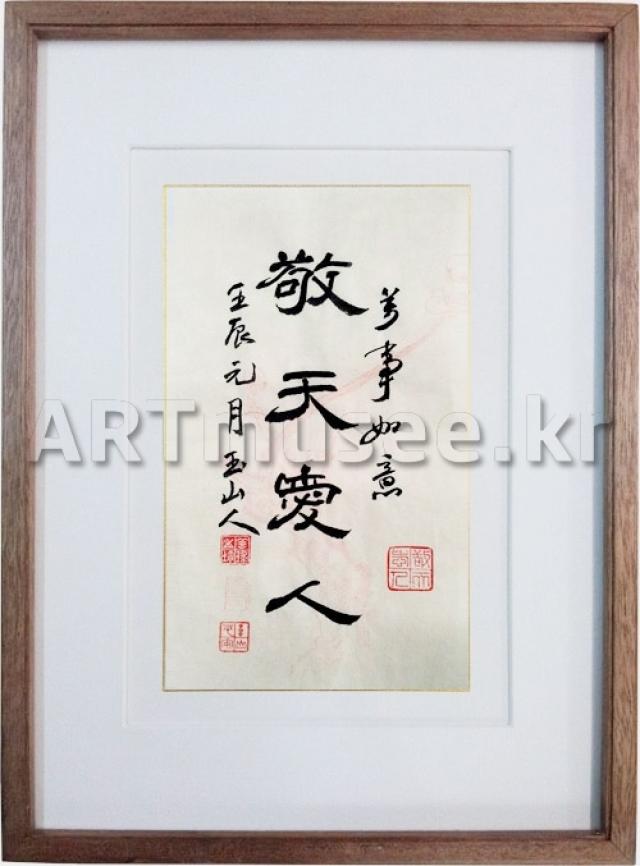 萬事如意
敬天愛人
壬辰元月 玉山人
ARTmusee.kr